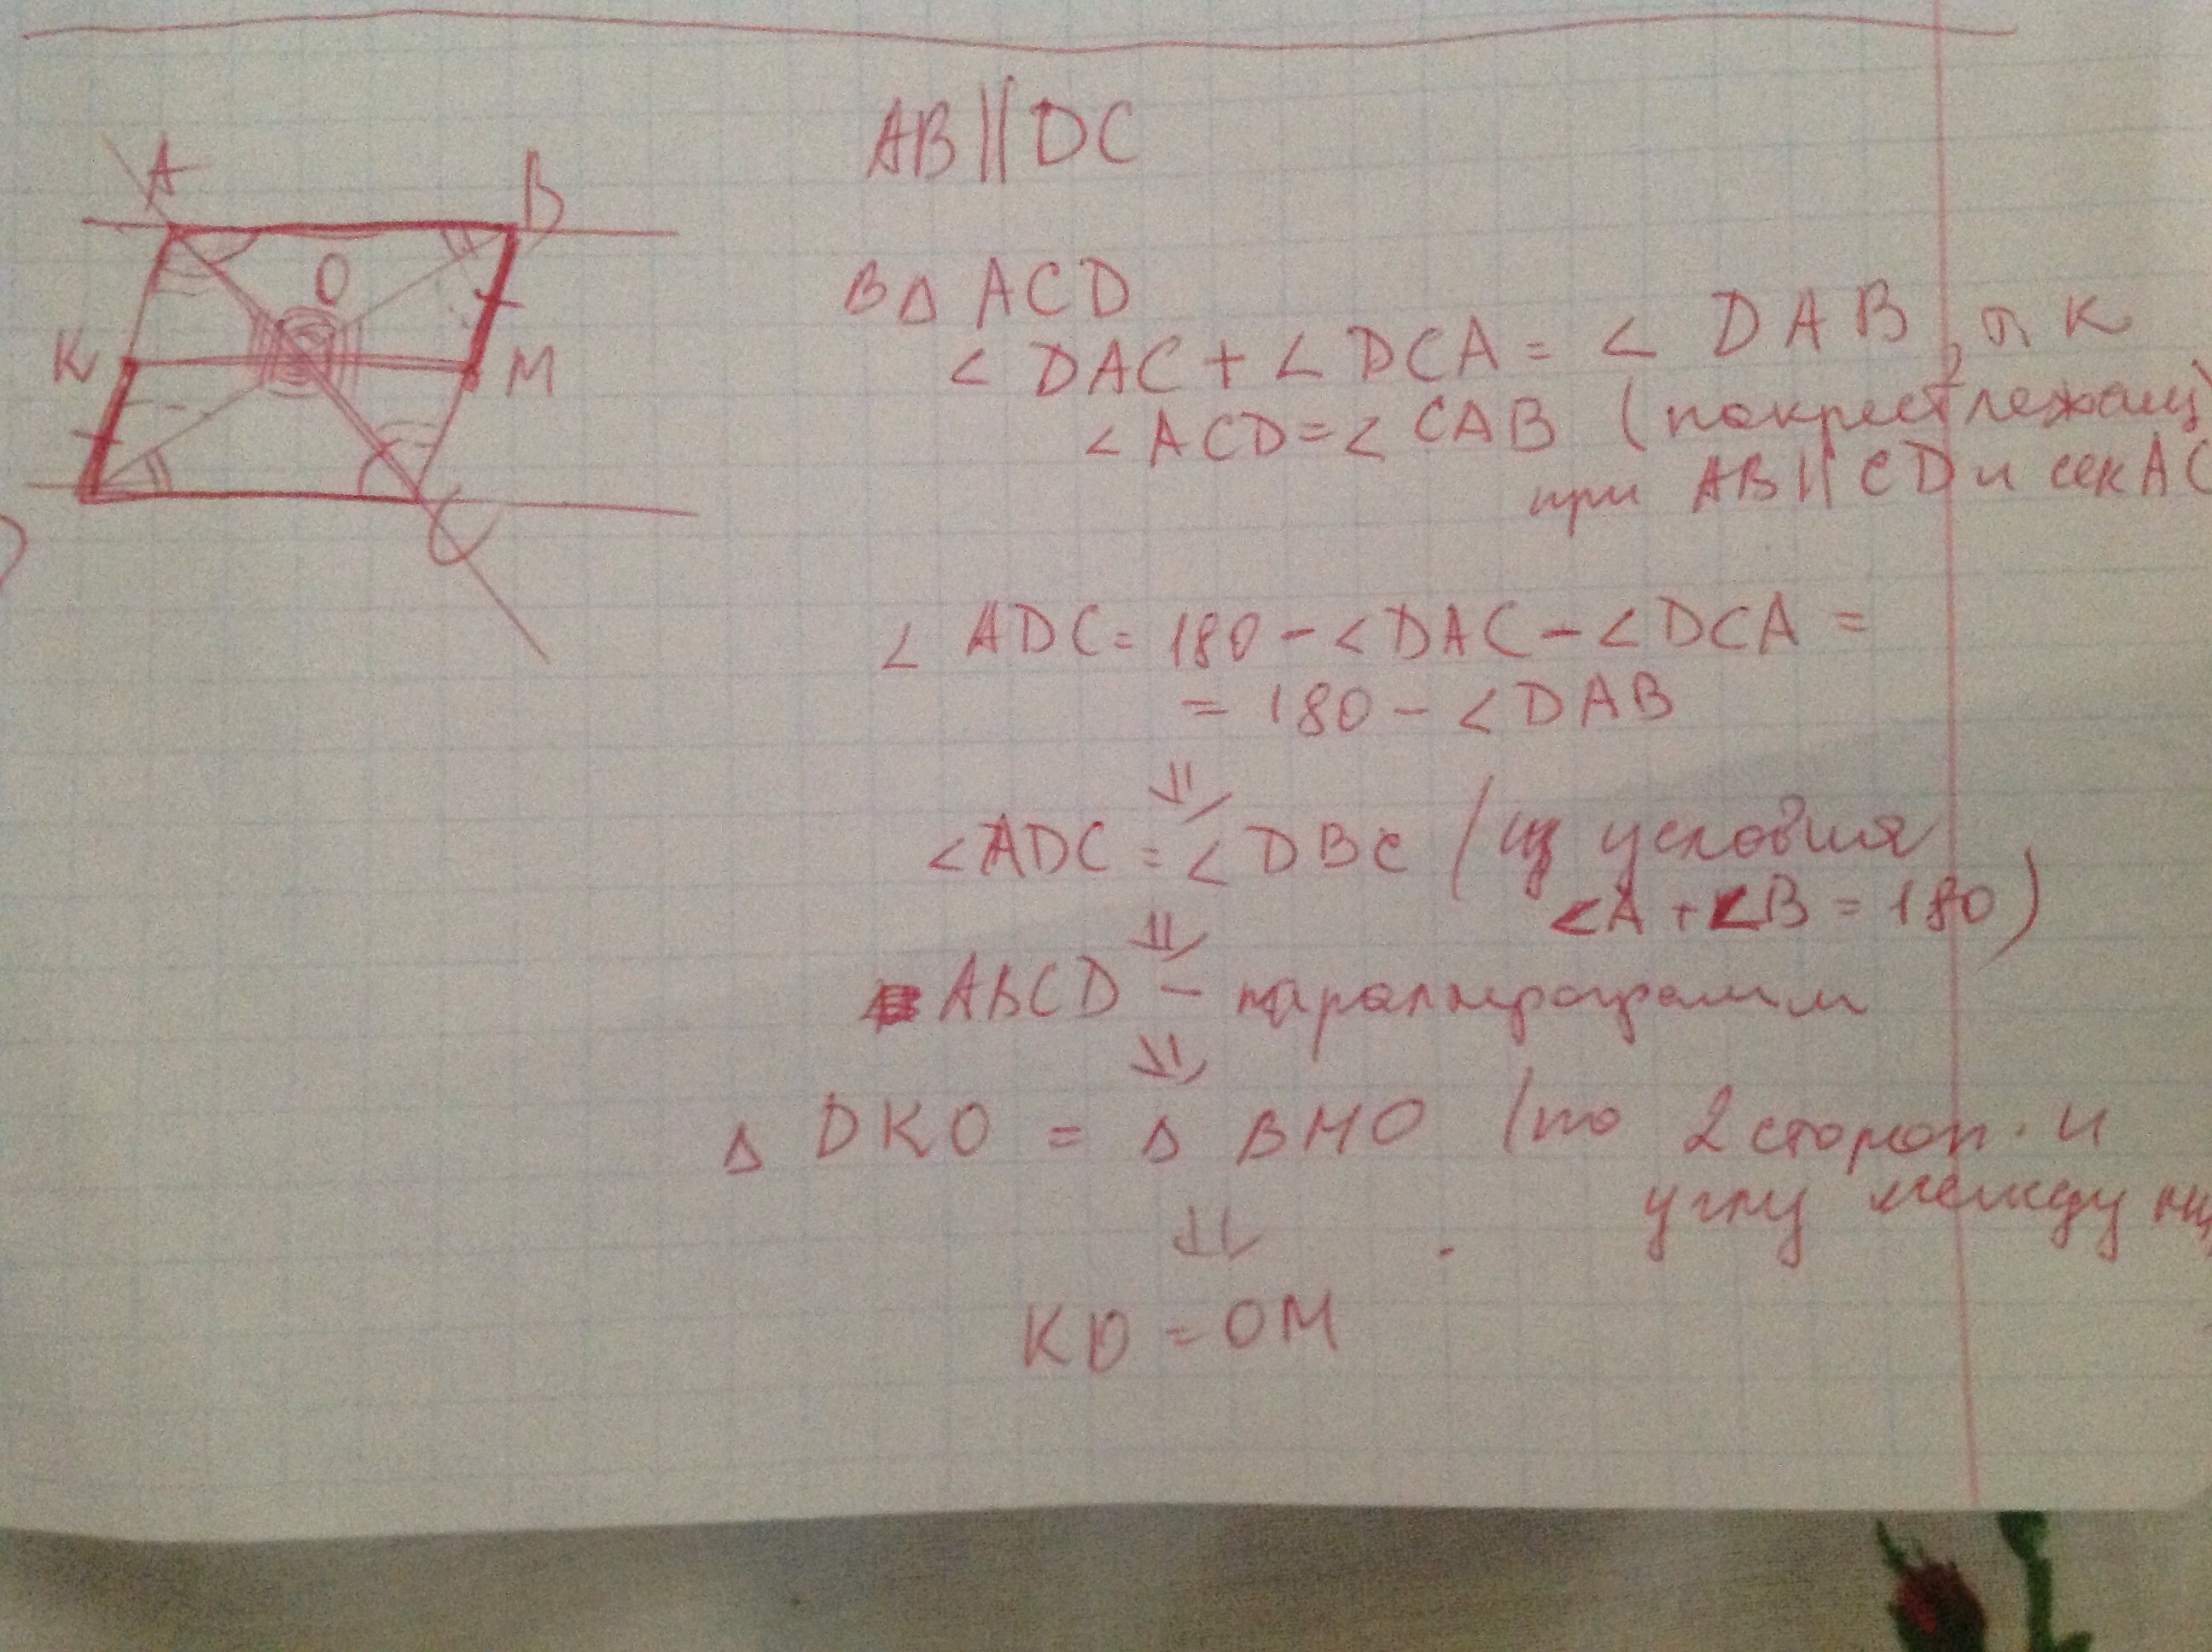 AB || DC
A
B
O
K
M
C
В Δ ACD
∠ DAC + ∠ DCA = ∠ DAB, т к
∠ ACD = ∠ CAB (накрест лежащ
при AB || CD и сек AC
∠ ADC = 180 - ∠DAC - ∠DCA =
= 180 - ∠DAB
⇓
∠ADC = ∠DBC (из условия
∠A + ∠B = 180)
⇓
ABCD -
⇓
Δ DKO = Δ BMO (по 2 сторон. и
углу между
⇓
KO = OM